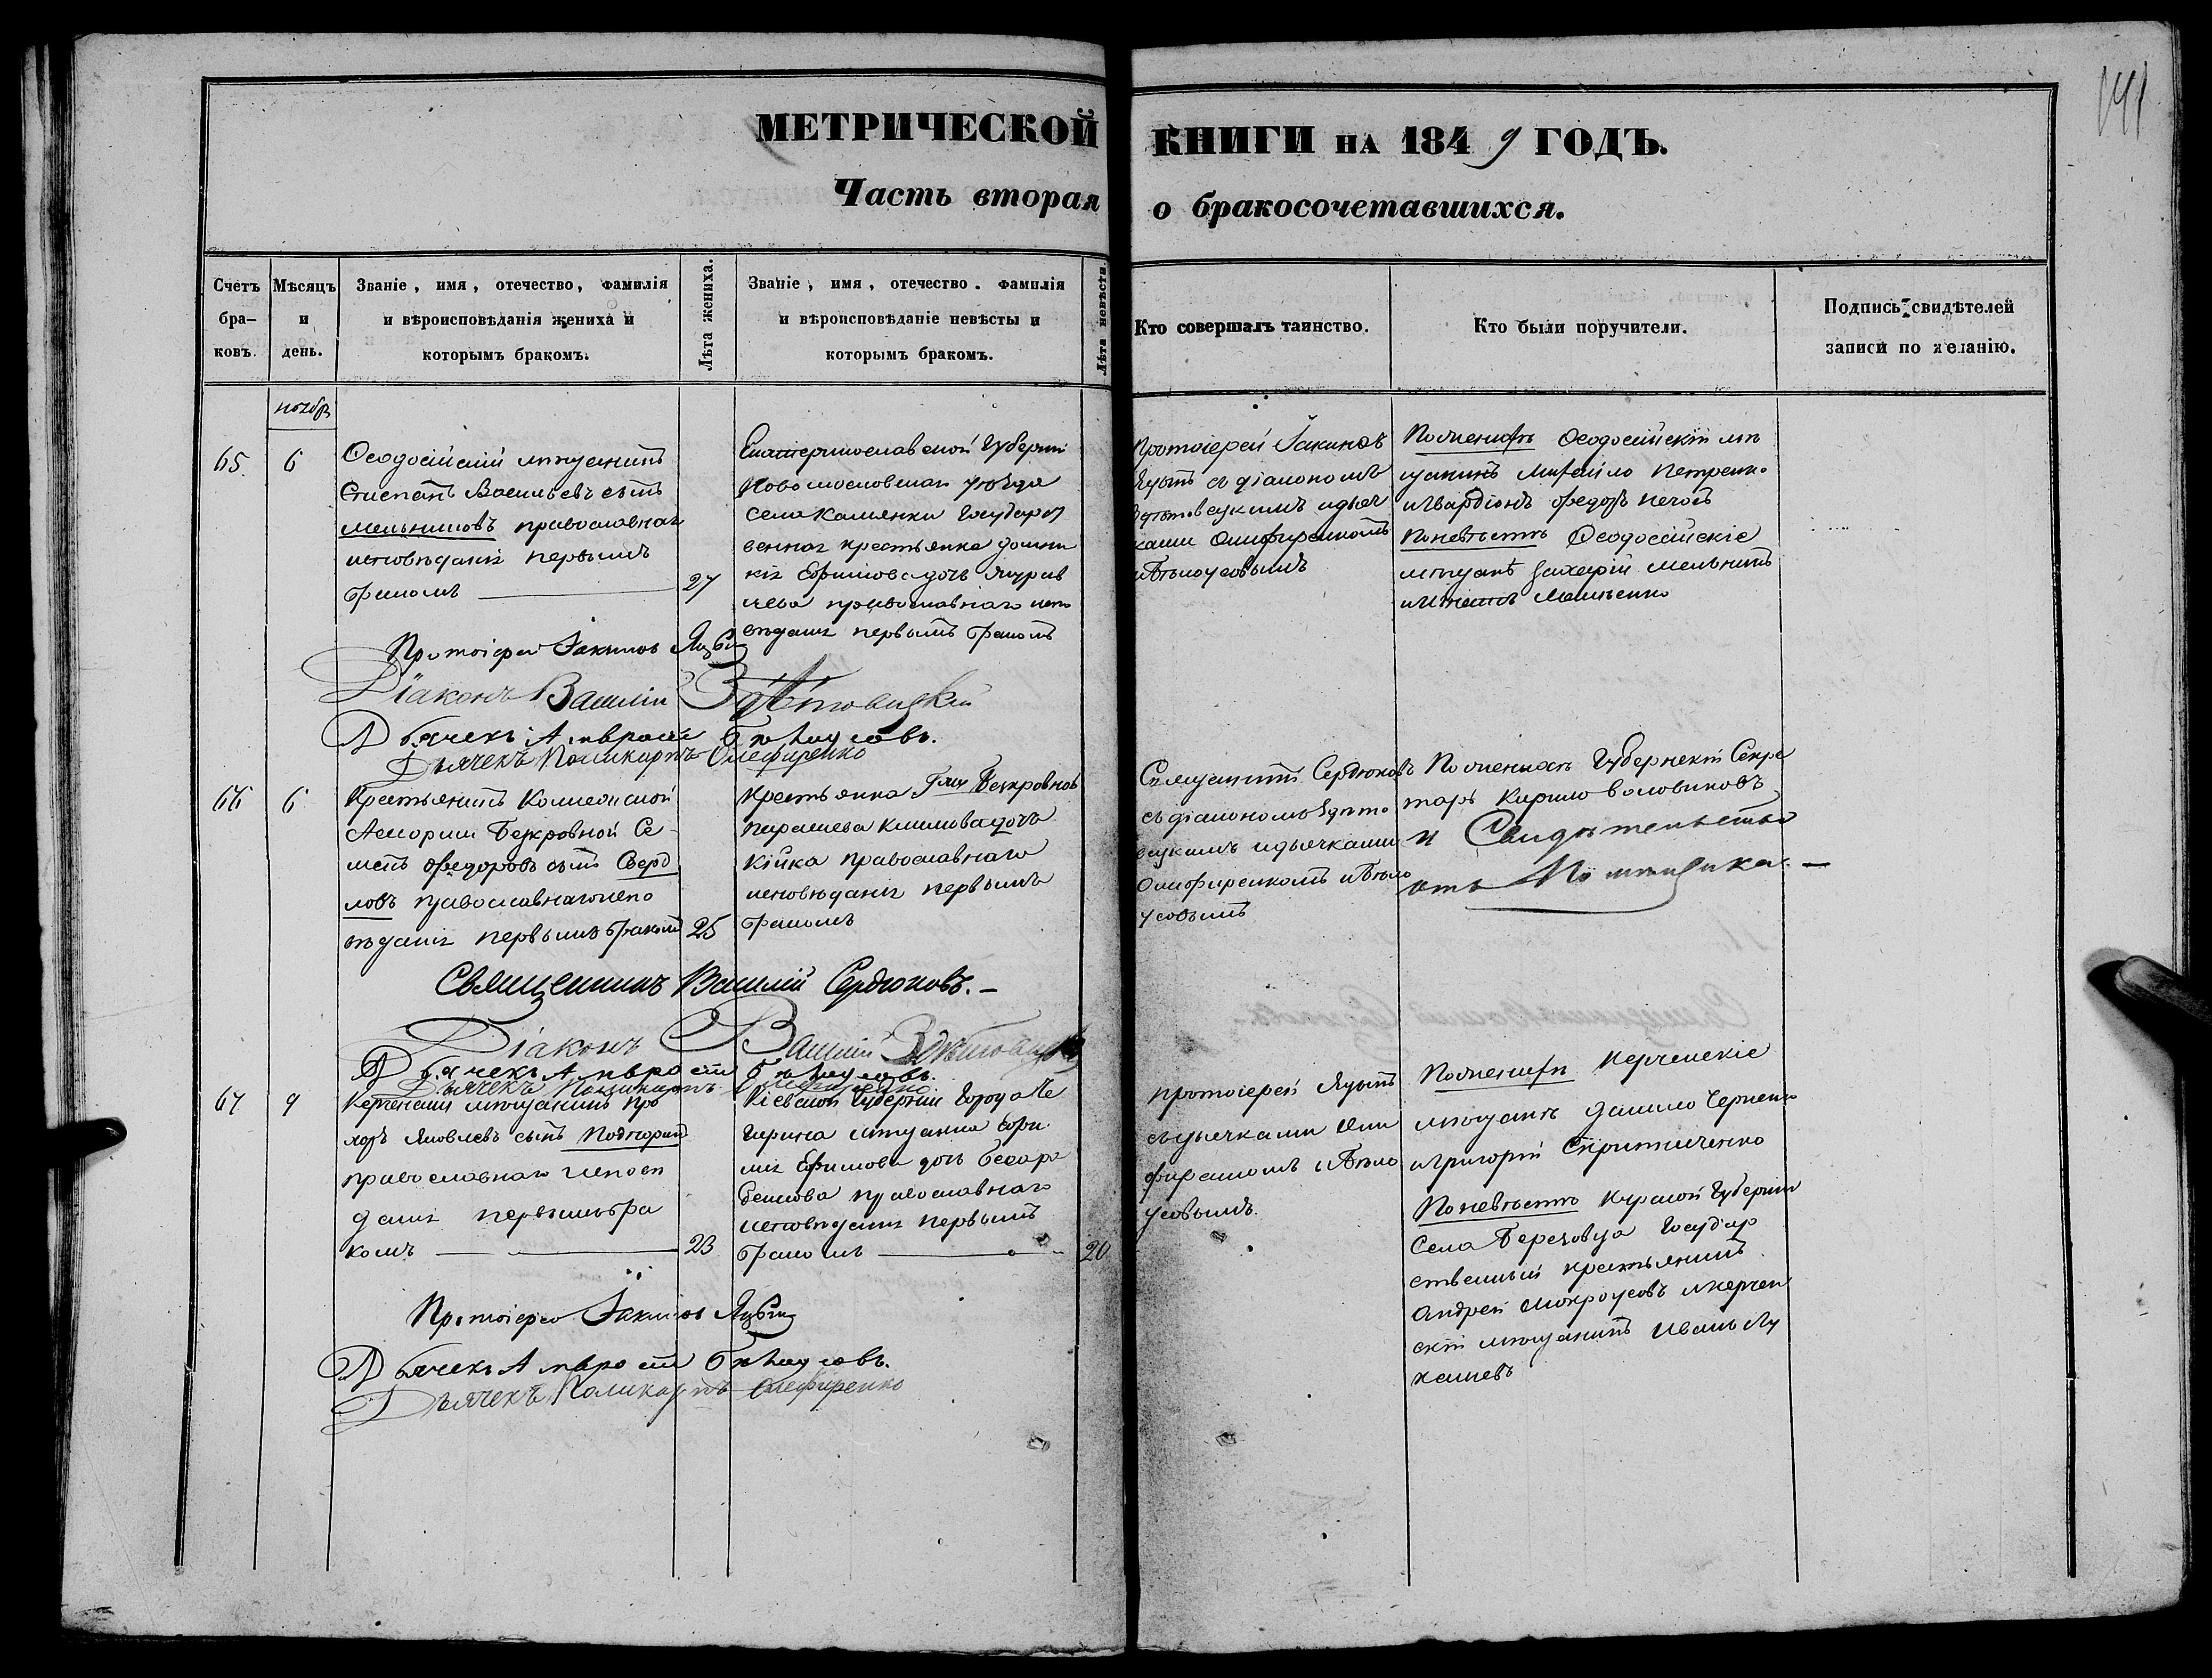 141
МЕТРИЧЕСКОЙ КНИГИ НА 1849 ГОДЪ.
Часть вторая о бракосочетавшихся.
Счетъ бра-ковъ.
Мѣсяцъ и день.
Званіе, имя, отечество, фамилія
и вѣроисповѣданія жениха и
которымъ бракомъ.
Лѣта жениха.
Званіе, имя, отечество. фамилія
и вѣроисповѣданіе невѣсты и
которымъ бракомъ.
Лѣта невѣсты.
Кто совершалъ таинство.
Кто были поручители.
Подпись свидѣтелей
записи по желанію.
ноябр
65.
6
Ѳеодосійскій мѣщанинъ
Стиепанъ Васильевъ сынъ
Мельниковъ православнаг
исповѣданія первымъ
бракомъ
27
Екатеринославской Губерніи
Новомосковскаг уѣзда
села Каменки Государст
венная крестьянка домни
кія Ефимова дочь
православнаго испо
вѣданія первымъ бракомъ
Протоіерей Іакинѳъ
съ діакономъ
и дьяч
ками Олифиренкомъ
и Бѣлоусовымъ
По женихѣ Ѳеодосійскій мѣ
щанинъ Михайло Петренко
и Гвардіонъ Федоръ
По невѣстѣ Ѳеодосійскіе
мѣщанѣ Захарій Мельникъ
и Игнатъ
Протоіерей Іакинѳъ
Діаконъ Василій Здѣтовицкій
Дьячекъ Амвросій Бѣлоусовъ.
Дьячекъ Поликарпъ Олефиренко
66
6
Крестьянинъ Колежской
Асесорши Безкровной Се-
менъ Федоровъ сынъ Сверд
ловъ православнаго испо
вѣданія первымъ бракомъ
25
Крестьянка Безкровновъ
Климова дочь
Кійка православнаго
исповѣданія первымъ
бракомъ
Священникъ Сердюковъ
съ діакономъ Здѣто
вицкимъ и дьячками
Олифиренкомъ и Бѣло
усовымъ
По женихѣ Губернскій Секре
тарь Кирило Воловиковъ
и Свидѣтельство
отъ Помѣщика.
Священникъ Василій Сердюковъ.
Діаконъ Василій Здѣтовицкій
Дьячекъ Амвросій Бѣлоусовъ.
Дьячекъ Поликарпъ Олефиренко
67
9
Керченскій мѣщанинъ Про
хоръ Яковлевъ сынъ
православнаго исповѣ
данія первымъ бра
комъ
23
Кіевской Губерніи Города Че
гирина мѣщанка Ефи
мія Ефимова дочь Бесара
бенкова православнаго
исповѣданія первымъ
бракомъ
20
Протоіерей
съ дьячками Оли
фиренкомъ и Бѣло
усовымъ.
По женихѣ Керченскіе
мѣщанѣ Данило Черненко
и Григорій
По невѣстѣ Курской Губерніи
Села Березовца Государ
ственный крестьянинъ
Андрей Мокроусовъ и керчен
скій мѣщанинъ Иванъ Лу
кашевъ
Протоіерей Іакинѳъ
Дьячекъ Амвросій Бѣлоусовъ.
Дьячекъ Поликарпъ Олефиренко